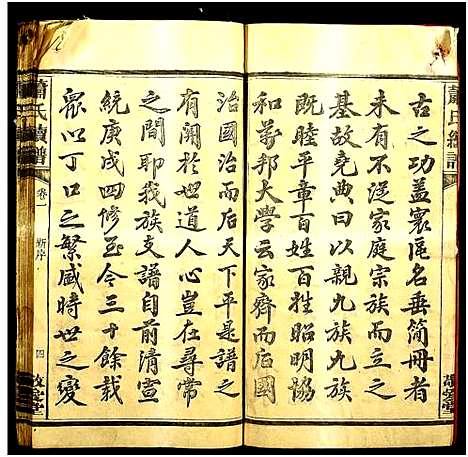 古之功蓋寰區名垂簡冊者
未有不從家庭宗族
基故堯典曰以親九族九族
既睦平章百姓百姓昭明協
和萬邦大學云家齊而后國
治國治而后天下平是譜之
有關於世道人心豈在尋常
之間耶我族支譜自前清宣
統庚戌四修至今三十餘載
眾以丁口之繁盛時世之變
蕭氏續譜
卷一
新序
四
蕭氏續譜